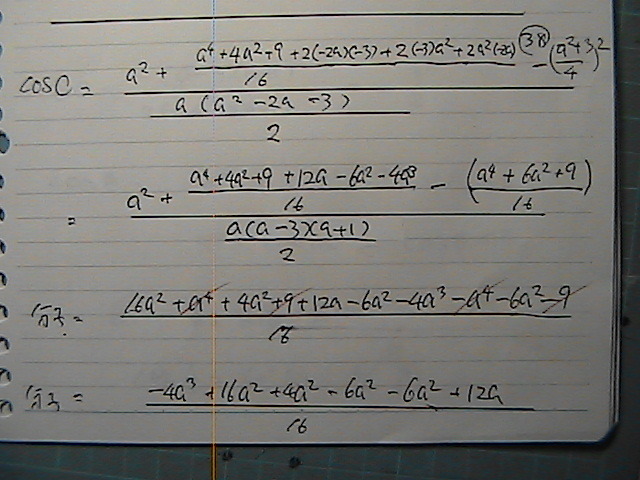 cosC = (a² + (a⁴+4a²+9+2(-2a)(-3)+2(-3)a²+2a²(-2a))/16 - ((a²+3)/4)²) / (a(a²-2a-3)/2)
38
= (a² + (a⁴+4a²+9+12a-6a²-4a³)/16 - (a⁴+6a²+9)/16) / (a(a-3)(a+1)/2)
分子= (16a²+a⁴+4a²+9+12a-6a²-4a³-a⁴-6a²-9)/16
分子= (-4a³+16a²+4a²-6a²-6a²+12a)/16